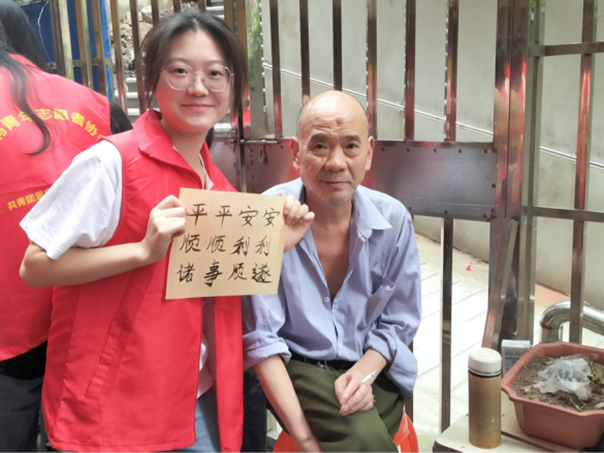 青年志愿者协
共青团
平平安安
顺顺利利
诸事顺遂